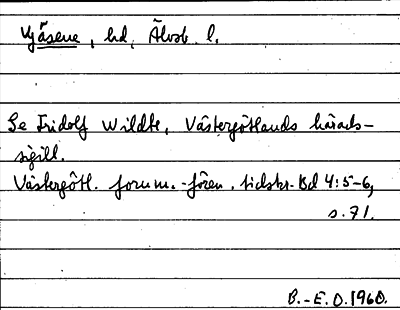 Gäsene, hd, Älvsb. l.
Se Fridolf Wildte, Västergötlands härads-
sigill.
Västergötl. fornm.-fören. tidskr. Bd 4:5-6,
s. 71.
B.-E. O. 1960.